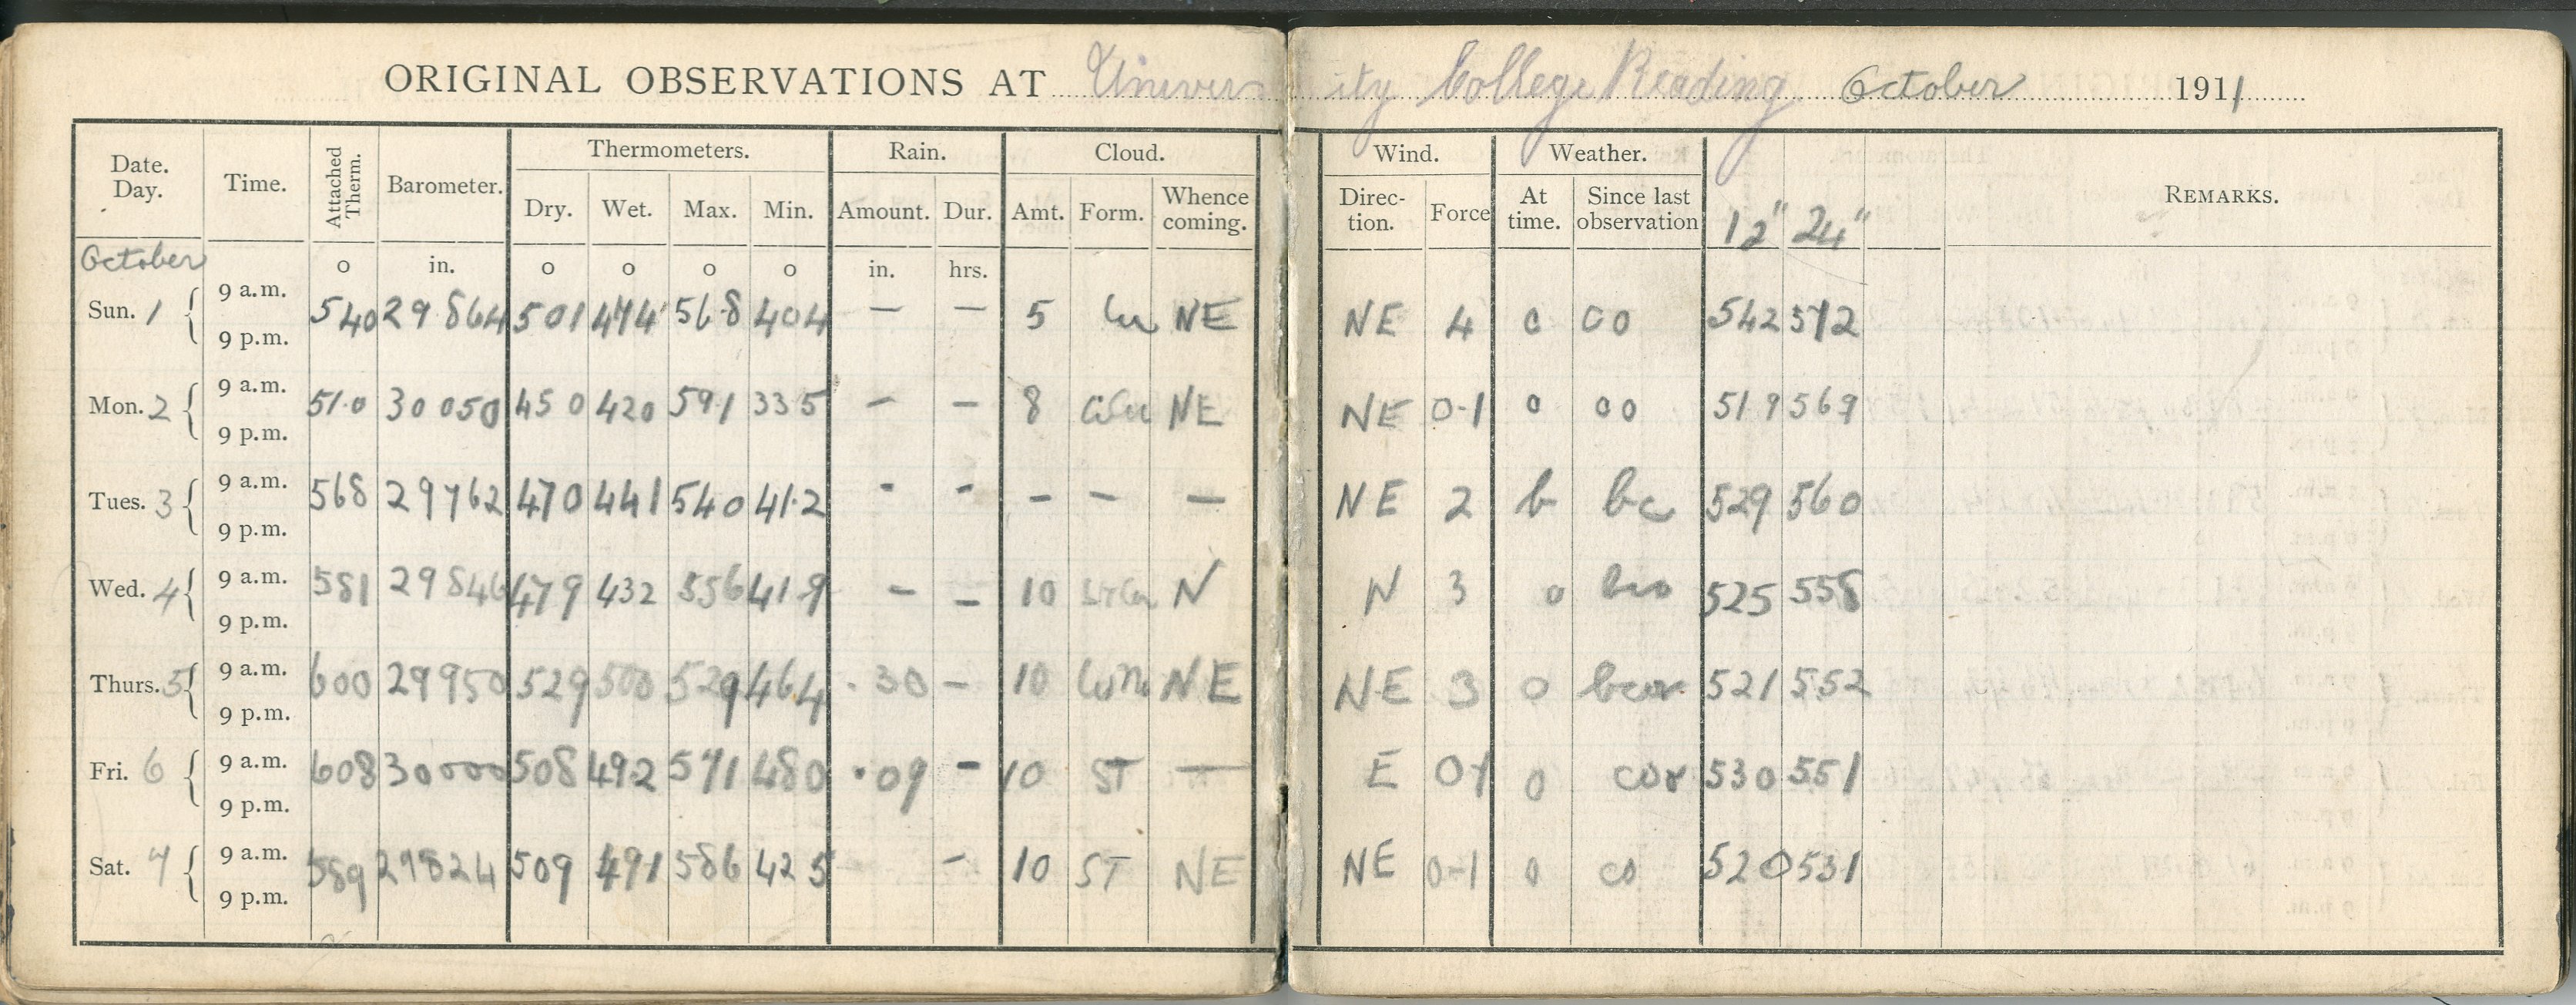 ORIGINAL OBSERVATIONS AT University College Reading October 1911
Date. Day. Time. Attached Therm. Barometer. Thermometers. Rain. Cloud. Wind. Weather. REMARKS.
Dry. Wet. Max. Min. Amount. Dur. Amt. Form. Whence coming. Direc- tion. Force At time. Since last observation 12" 24"
October o in. o o o o in. hrs.
9 a.m.
Sun. 1 540 29 864 501 474 56.8 404 — — 5 Cu NE NE 4 c co 542 572
9 p.m.
9 a.m.
Mon. 2 51.0 30 050 450 420 591 335 — — 8 NE NE 0-1 o co 519 569
9 p.m.
9 a.m.
Tues. 3 568 29762 470 441 540 41.2 - - - — — NE 2 b bc 529 560
9 p.m.
9 a.m.
Wed. 4 581 29 846 479 432 556 419 — — 10 StCu N N 3 o bco 525 558
9 p.m.
9 a.m.
Thurs. 5 600 29950 529 500 529 464 .30 — 10 NE NE 3 o bcor 521 552
9 p.m.
9 a.m.
Fri. 6 608 30000 508 492 571 480 .09 - 10 ST — E 0-1 o cor 530 551
9 p.m.
9 a.m.
Sat. 7 589 29824 509 491 586 425 — 10 ST NE NE 0-1 o co 520 531
9 p.m.